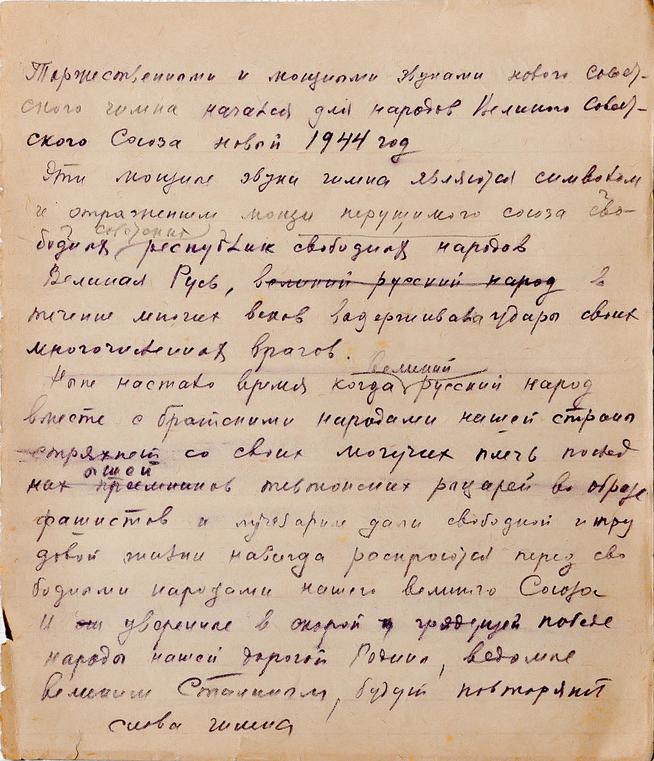 Торжественными и мощными звуками нового Совет-
ского гимна начался для народов Великого Совет-
ского Союза новый 1944 год
Эти мощные звуки гимна являются символом
и отражением мощи нерушимого союза сво-
советских
бодных республик свободных народов
Великая Русь, великий русский народ в
течение многих веков выдерживала удары своих
многочисленных врагов.
великий
Ныне настало время когда русский народ
вместе с братскими народами нашей страны
стряхнет со своих могучих плеч послед
них преемников тевтонских рыцарей в образе
фашистов и лучезарные дали свободной и тру
довой жизни навсегда раскроются перед сво
бодными народами нашего великого Союза
И уверенные в скорой и грядущей победе
народы нашей дорогой Родины, ведомые
великим Сталиным, будут повторять
слова гимна